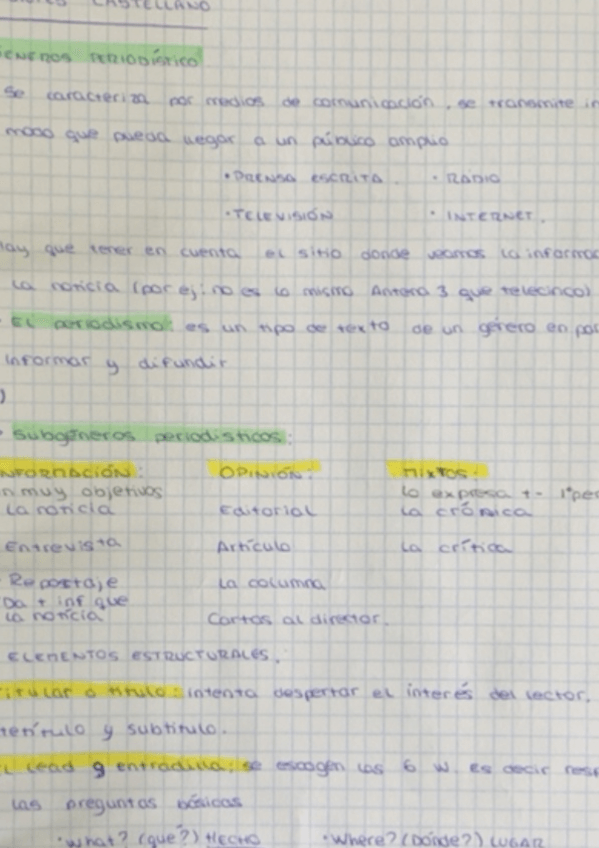 CASTELLANO
ENEROS PERIODÍSTICO
Se caracteriza por medios de comunicación, se transmite in
modo que pueda llegar a un público amplio
· PRENSA ESCRITA. · RADIO
· TELEVISIÓN · INTERNET.
Hay que tener en cuenta el sitio donde veamos la informac
la noticia (por ej: no es lo mismo Antena 3 que telecinco)
El periodismo: es un tipo de texto de un género en par
informar y difundir
)
Subgéneros periodísticos:
NFORMACIÓN: OPINIÓN: MIXTOS:
n muy objetivos lo expresa +- 1ª per
La noticia Editorial La crónica
Entrevista Artículo La crítica
Reportaje La columna
Da + inf que
la noticia Cartas al director.
ELEMENTOS ESTRUCTURALES.
itular o título: intenta despertar el interés del lector.
tetítulo y subtítulo.
l Lead y entradilla: se escogen las 6 W. es decir res
las preguntas básicas
· What? (qué?) HECHO · Where? (Dónde?) LUGAR